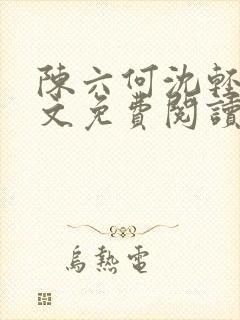 陳六何沈輕
文免費閱讀
烏熱電